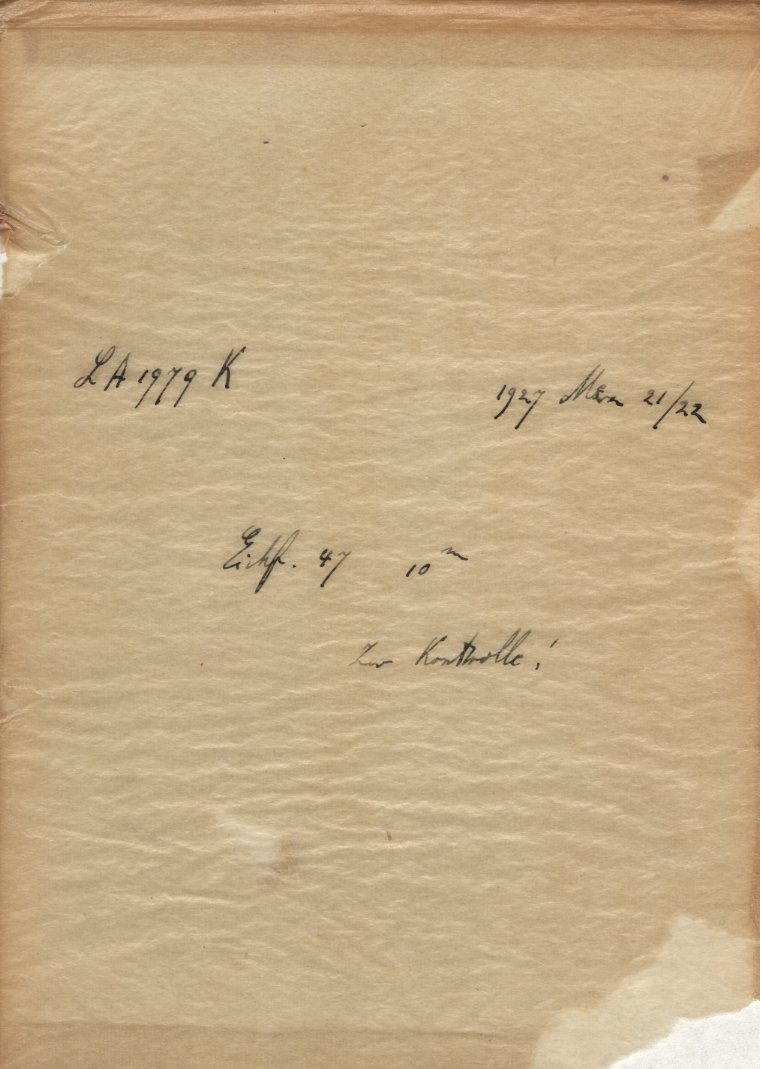 LA 1979 K
1927 März 21/22
Eichf. 47 10ᵐ
Zur Kontrolle!